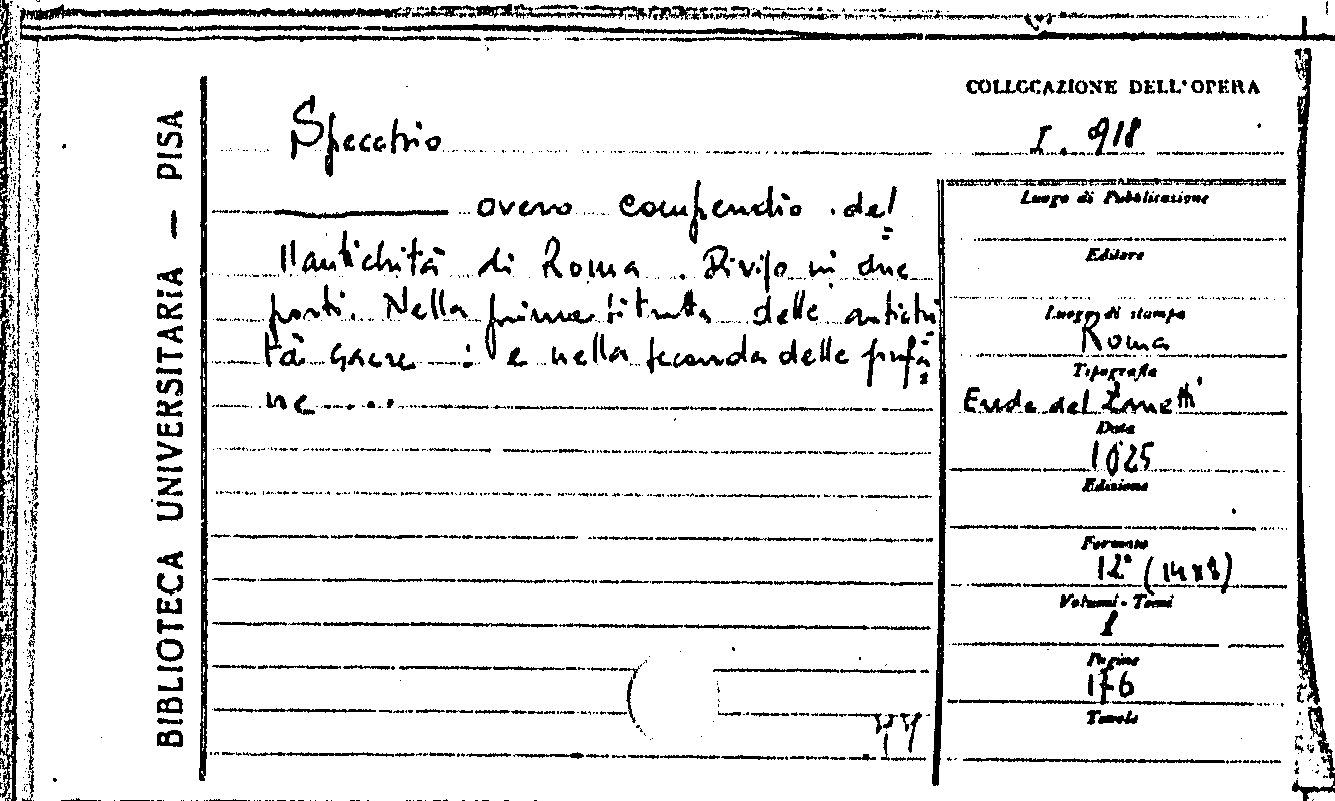 BIBLIOTECA UNIVERSITARIA — PISA
COLLOCAZIONE DELL'OPERA
I. 918
Specchio
overo compendio del
l'antichità di Roma. Diviso in due
parti. Nella prima si tratta delle antichi
tà sacre : e nella seconda delle profa
ne ....
Luogo di Pubblicazione
Editore
Luogo di stampa
Roma
Tipografia
Erede del Zanetti
Data
1625
Edizione
Formato
12° (14x8)
Volumi - Tomi
1
Pagine
176
Tavole